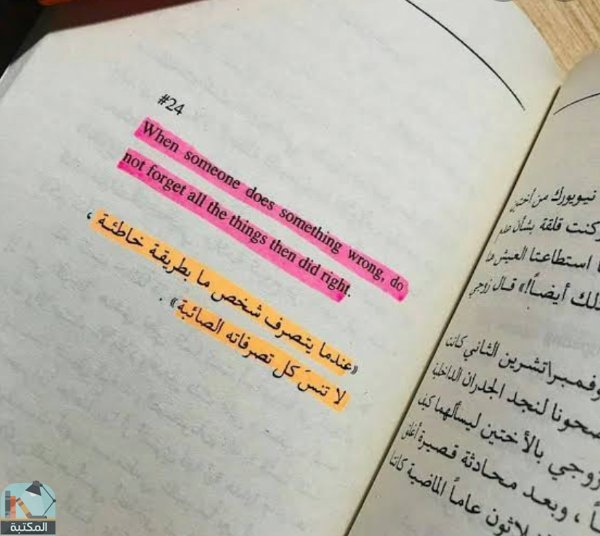 #24
When someone does something wrong, do
not forget all the things then did right.
«عندما يتصرف شخص ما بطريقة خاطئة ،
لا تنسَ كل تصرفاته الصائبة» .
نيويورك من
كنت قلقة بشأن عدم
استطاعتنا العيش
أيضاً!» قال زوجي
تشرين الثاني كانت
لنجد الجدران الداخلية
زوجي بالأختين ليسألهما كيف
، وبعد محادثة قصيرة
ثلاثون عاماً الماضية كانتا
المكتبة